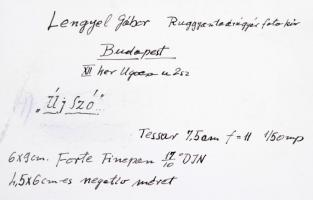 Lengyel Gábor Ruggyantaárúgyár fotokör
Budapest
XII ker Ugocsa u 2sz
"Új Szó"
Tessar 7,5cm f=11 1/50mp
6x9cm. Forte Finepan 17/10° DIN
4,5x6cm-es negatív méret